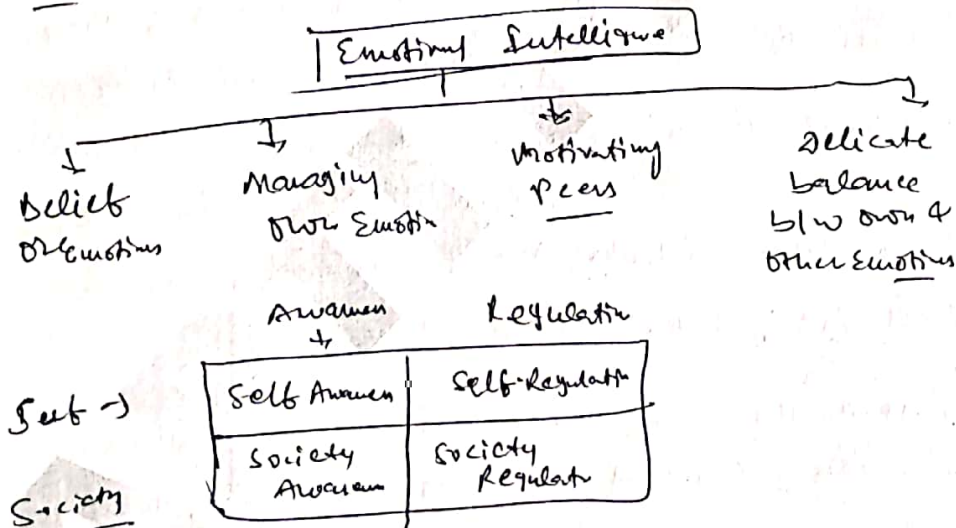 Emotional Intelligence
Belief
on Emotions
Managing
own Emotion
Motivating
Peers
Delicate
balance
b/w own &
other Emotions
Awareness
Regulation
Self →
Self Awareness
Self-Regulation
Society
Society
Awareness
Society
Regulation